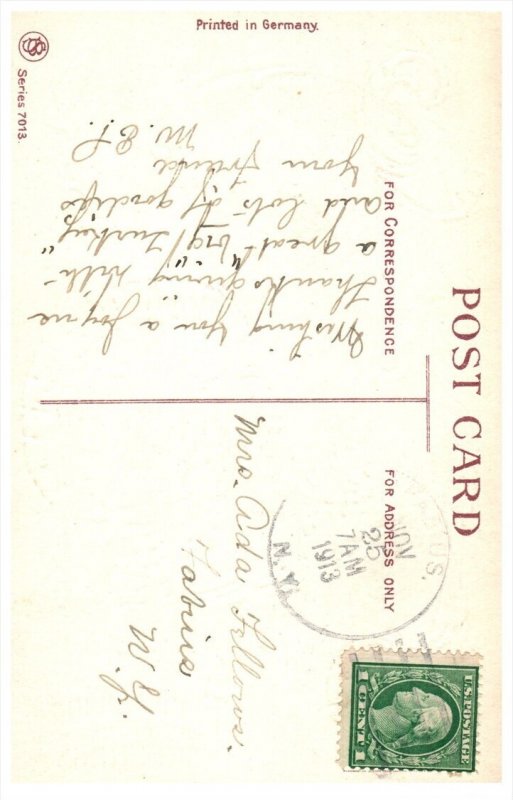 Printed in Germany.
Series 7013.
POST CARD
FOR CORRESPONDENCE
FOR ADDRESS ONLY
Wishing you a
Thanksgiving with
a great "big Turkey"
and lots of goodies
Your Friend
M. E. P.
Mrs. Ada Fellows.
Fabius
N.Y.
NOV
25
7 AM
1913
N.Y.
U.S. POSTAGE
1 CENT 1